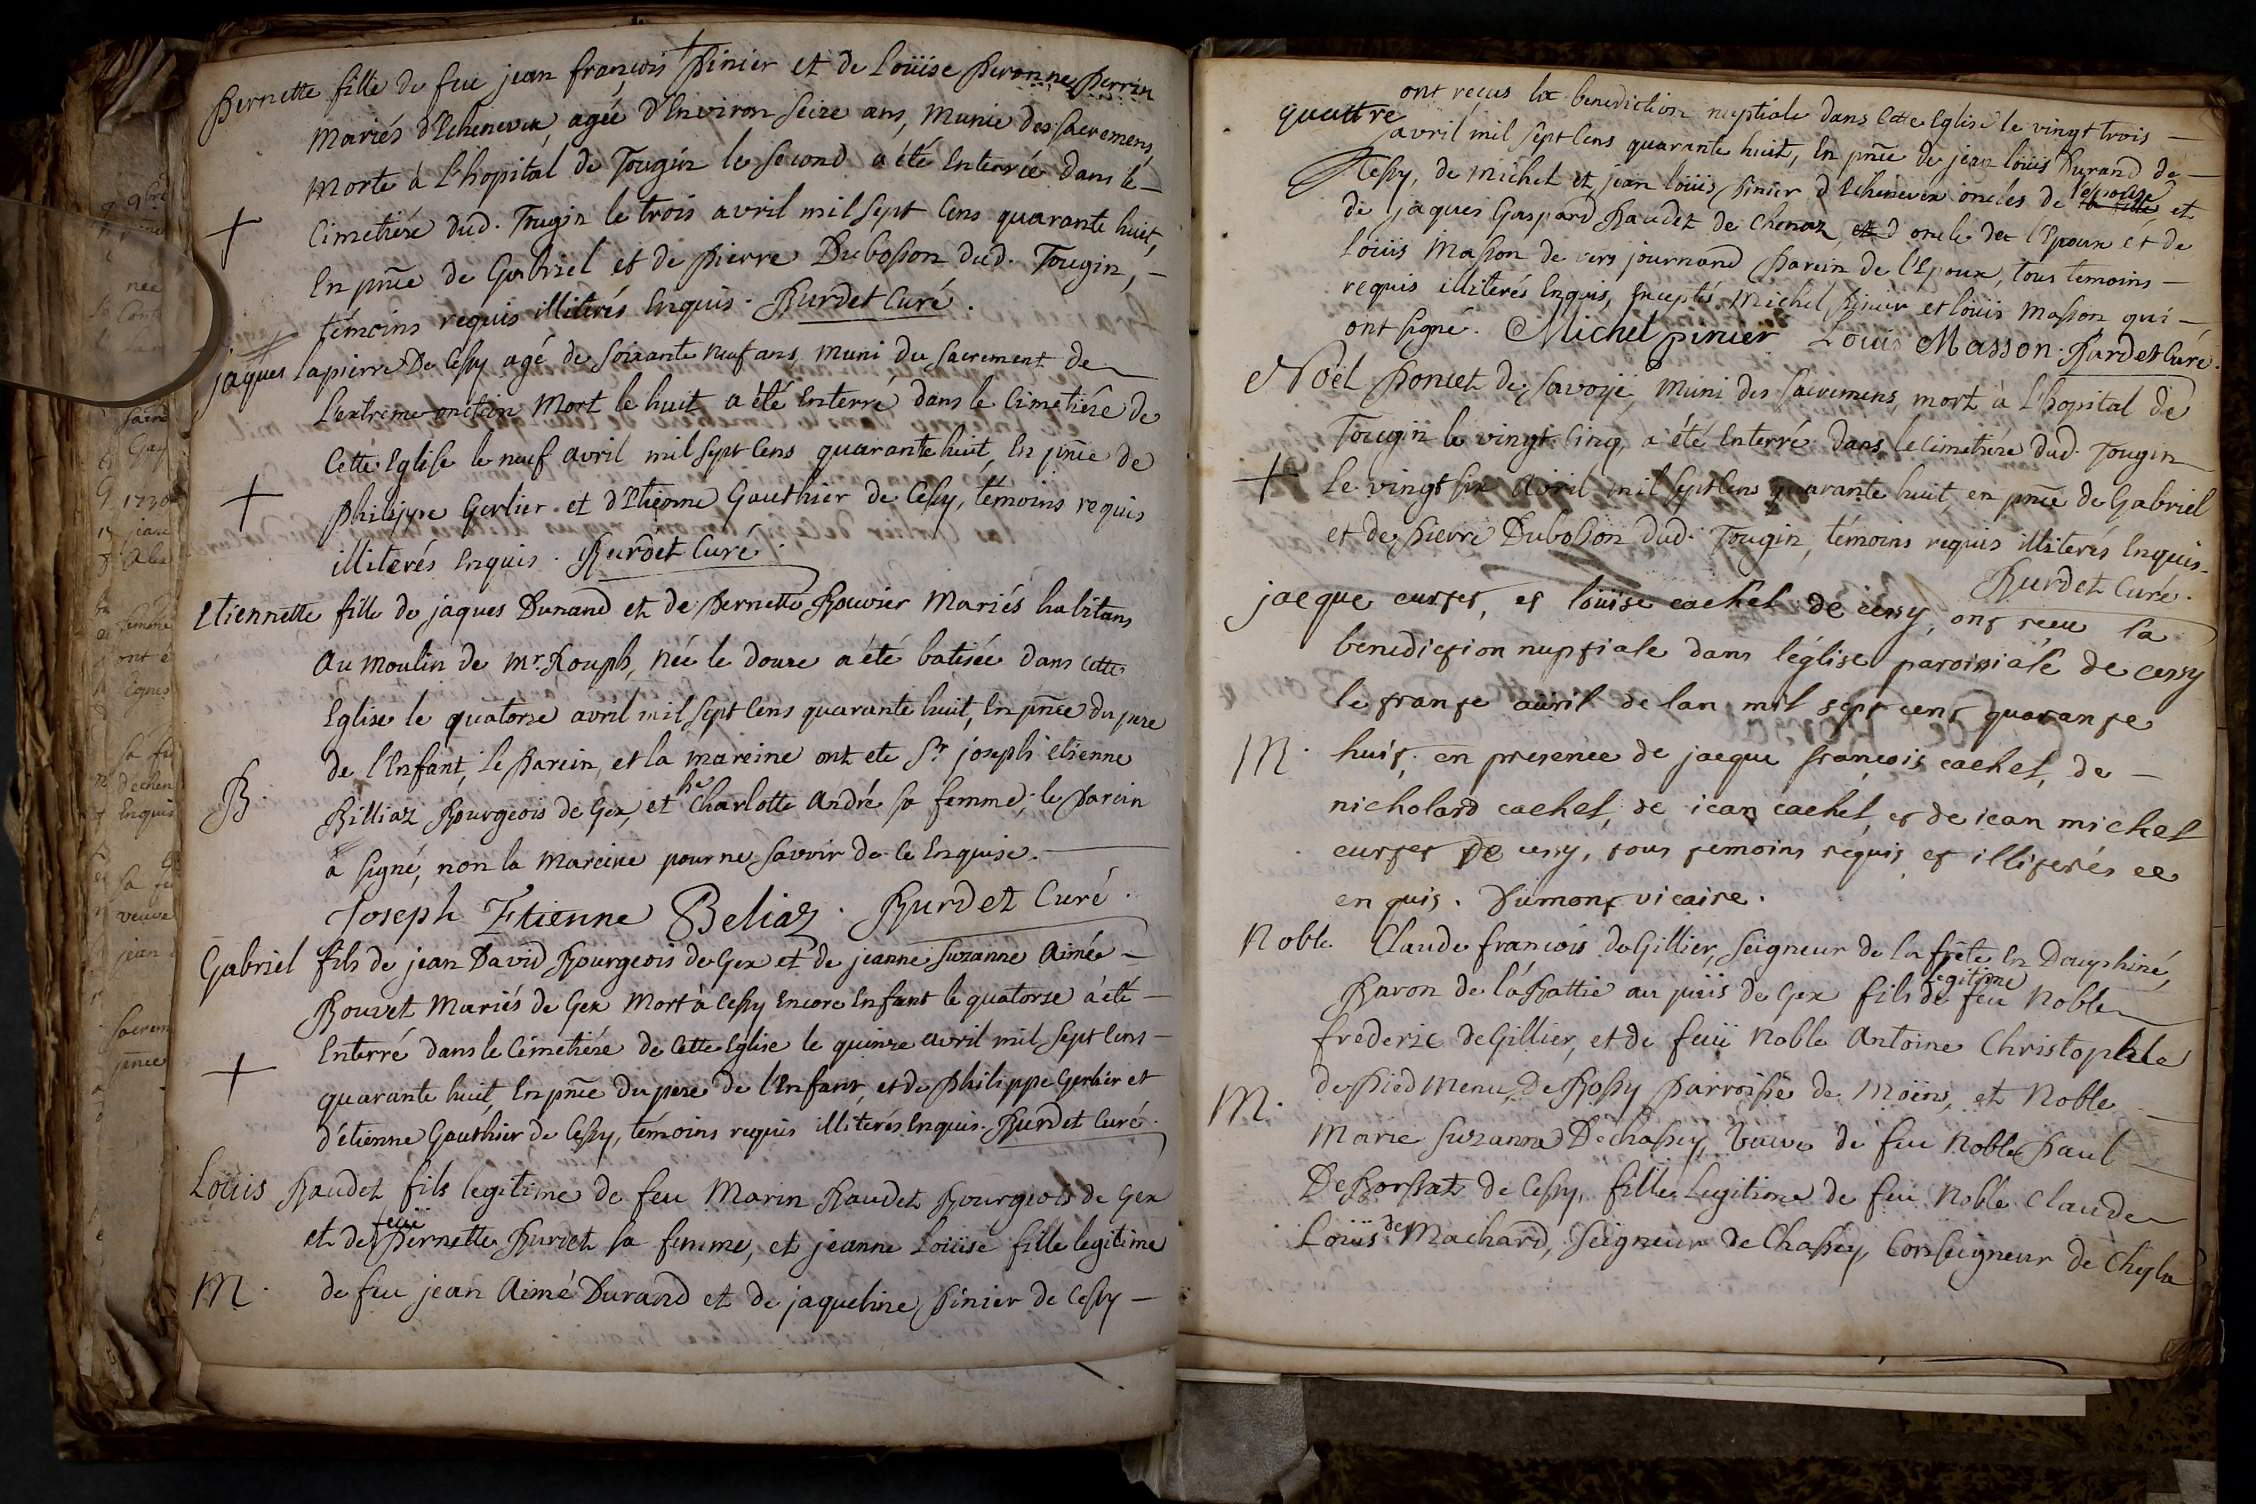 Pernette fille de feu jean françois Pinier et de Loüise Peronne Perrin
Mariés d'Echenevex, agée d'Environ seize ans, munie des sacremens,
morte à l'hopital de Tougin le second a été Enterrée dans le
+ Cimetiére dud. Tougin le trois avril mil sept Cens quarante huit,
En pnce de Gabriel et de pierre Dubosson dud. Tougin, —
témoins requis illiterés Enquis. Burdet Curé.
jaques Lapierre De Cessy agé de soixante neuf ans muni du sacrement de
L'extreme-onction mort le huit a été Enterré dans le Cimetiére de
Cette Eglise le neuf avril mil sept Cens quarante huit, En pnce de
+ philippe Gerlier et d'Etienne Gauthier de Cessy, témoins requis
illiterés Enquis. Burdet Curé.
Etiennette fille de jaques Dunand et de Pernette Bouvier Mariés habitans
au moulin de mr. Rouph, née le douze a été batisée dans cette
Eglise le quatorze avril mil sept Cens quarante huit, En pnce du pere
de l'Enfant, le parein, et la mareine ont eté Sr. joseph Etienne
B. Billiaz Bourgeois de Gex, et Charlotte André sa femme, le parein
à signé, non la mareine pour ne savoir de ce Enquise.
Joseph Etienne Beliaz. Burdet Curé.
Gabriel fils de jean David Bourgeois de Gex et de jeanne Suzanne Aimée —
Bouvet Mariés de Gex mort à Cessy Encore Enfant le quatorze a été —
Enterré dans le Cimetiére de Cette Eglise le quinze avril mil sept Cens —
+ quarante huit, En pnce du pere de l'Enfant, et de philippe Gerlier et
d'étienne Gauthier de Cessy, témoins requis illiterés Enquis. Burdet Curé.
Loüis Baudet fils legitime de feu Marin Baudet Bourgeois de Gex
et de feüe Pernette Buriet sa femme, et jeanne Loüise fille legitime
M. de feu jean Aimé Durand et de jaqueline Pinier de Cessy —
ont reçus la benediction nuptiale dans cette Eglise le vingt trois —
quattre avril mil sept Cens quarante huit, En pnce de jean loüis Durand de —
Cessy, de michel et jean loüis Pinier d'Echenevex oncles de la fille l'epouse et
de jaques Gaspard Baudet de Chenaz, et d oncle de l'Epoux et de
Loüis Masson de vers journand parein de l'Epoux, tous temoins —
requis illiterés Enquis, Exceptés Michel Pinier et loüis Masson qui —
ont signé. Michel pinier Louis Masson. Burdet Curé.
Noël Poncet de Savoÿe, muni des sacremens, mort à l'hopital de
Tougin le vingt Cinq, a été Enterré dans le cimetiére dud. Tougin
+ Le vingt six avril mil sept Cens quarante huit, en pnce de Gabriel
et de pierre Dubosson dud. Tougin, témoins requis illiterés Enquis.
Burdet Curé.
jacque curtet, et loüise cachet de cessy, ont recu la
benediction nuptiale dans l'église paroissiale de cessy
le trante auril de lan mil sept cent quarante
M. huit, en presence de jacque françois cachet, de —
nicholard cachet, de iean cachet, et de iean michel
curtet de cessy, tous temoins requis et illiterés ee
en quis. Dumont vicaire.
Noble Claude françois de Gillier, seigneur de la frête En Dauphiné,
Baron de la Battie au païs de Gex fils legitime de feu Noble
frederic de Gillier, et de feüe Noble Antoine Christophle
de Pied menu, De Bossy parroisse de Moëns, et Noble
M. Marie Suzanne Dechassey, veuve de feu Noble Paul
De Borssat de Cessy, fille legitime de feu Noble Claude
Loüis de Machard, seigneur de Chassey, Conseigneur de Chyla